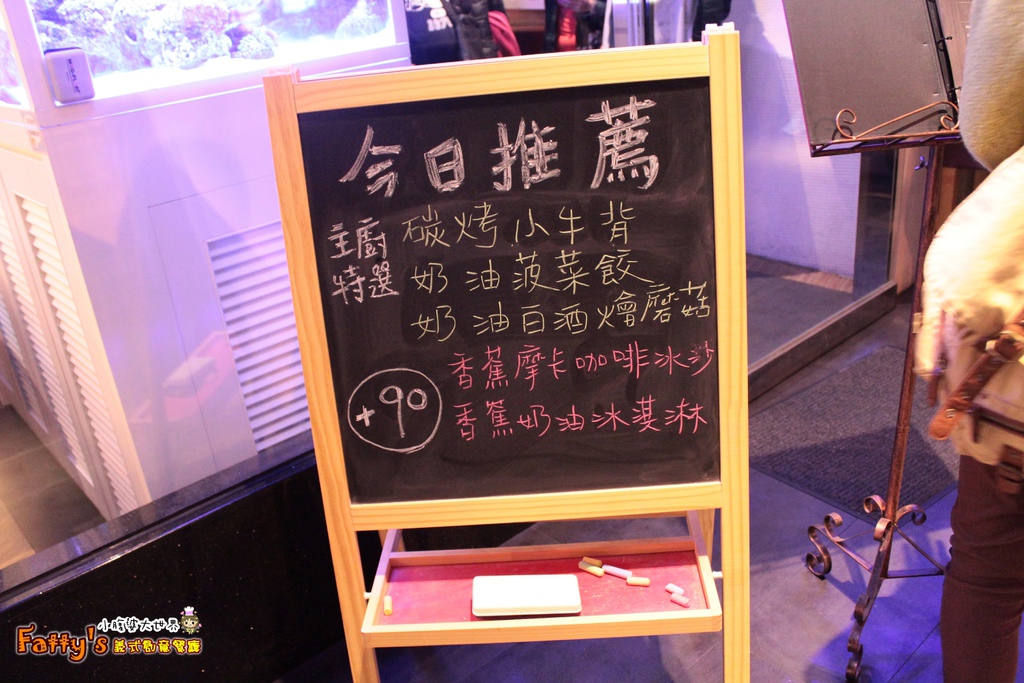 今日推薦
主廚
特選
碳烤小牛背
奶油菠菜餃
奶油白酒燴磨菇
香蕉摩卡咖啡冰沙
+90
香蕉奶油冰淇淋
小胖婆大世界
Fatty's
義式創意餐廳